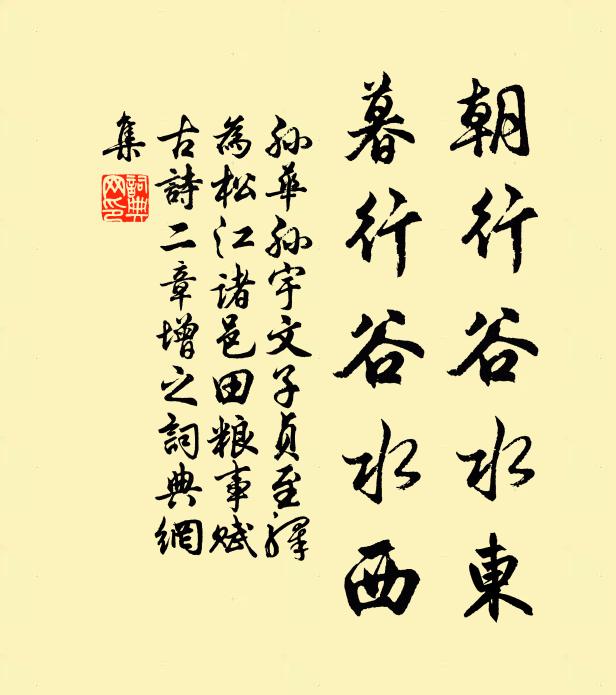 朝行谷水東
暮行谷水西
孫華孫宇文子貞至驛
為松江諸邑田粮事賦
古詩二章增之詞典網
集
詞典網印